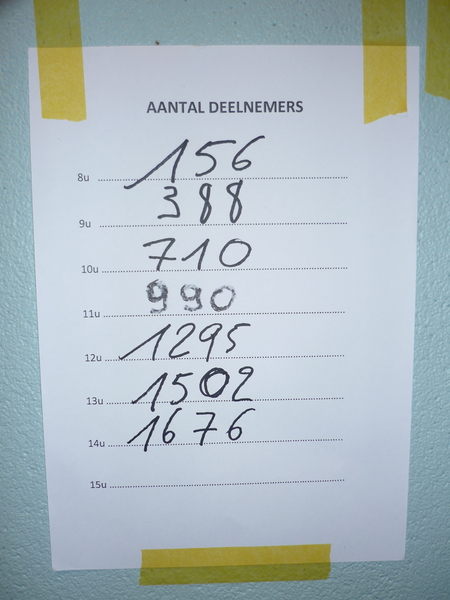 AANTAL DEELNEMERS
8u 156
9u 388
10u 710
11u 990
12u 1295
13u 1502
14u 1676
15u